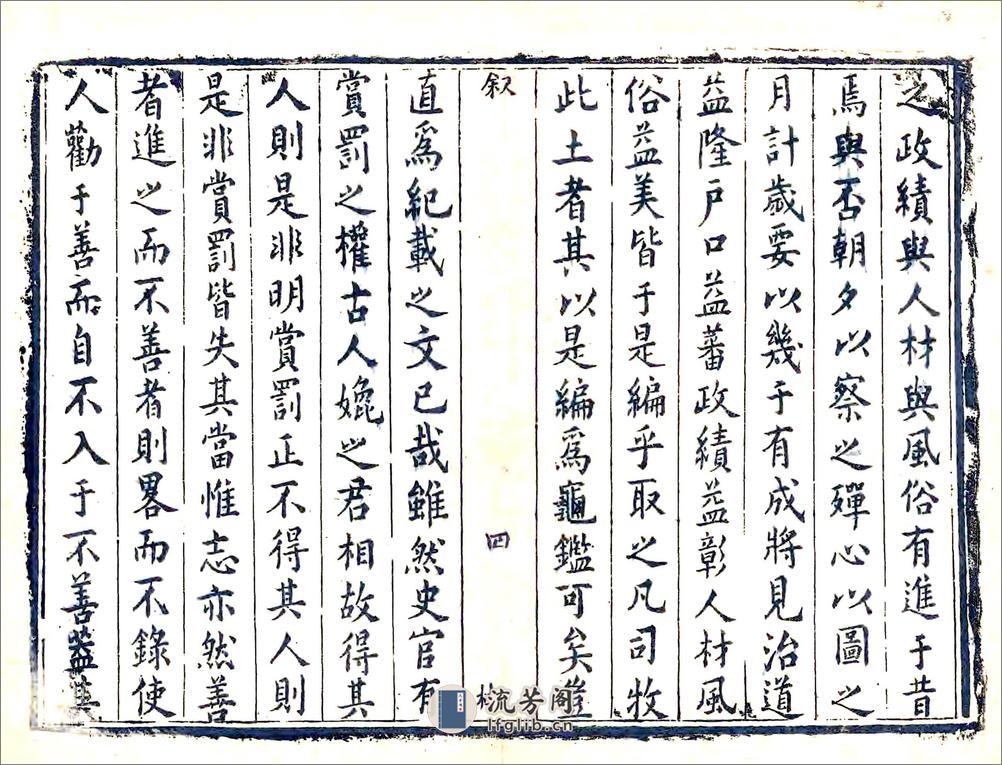 之政績與人材與風俗有進于昔
焉與否朝夕以察之殫心以圖之
月計歲要以幾于有成將見治道
益隆戶口益蕃政績益彰人材風
俗益美皆于是編乎取之凡司牧
此土者其以是編為龜鑑可矣豈
叙
四
直為紀載之文已哉雖然史官有
賞罰之權古人媲之君相故得其
人則是非明賞罰正不得其人則
是非賞罰皆失其當惟志亦然善
者進之而不善者則畧而不錄使
人勸于善而自不入于不善益其
流芳阁
lfglib.cn